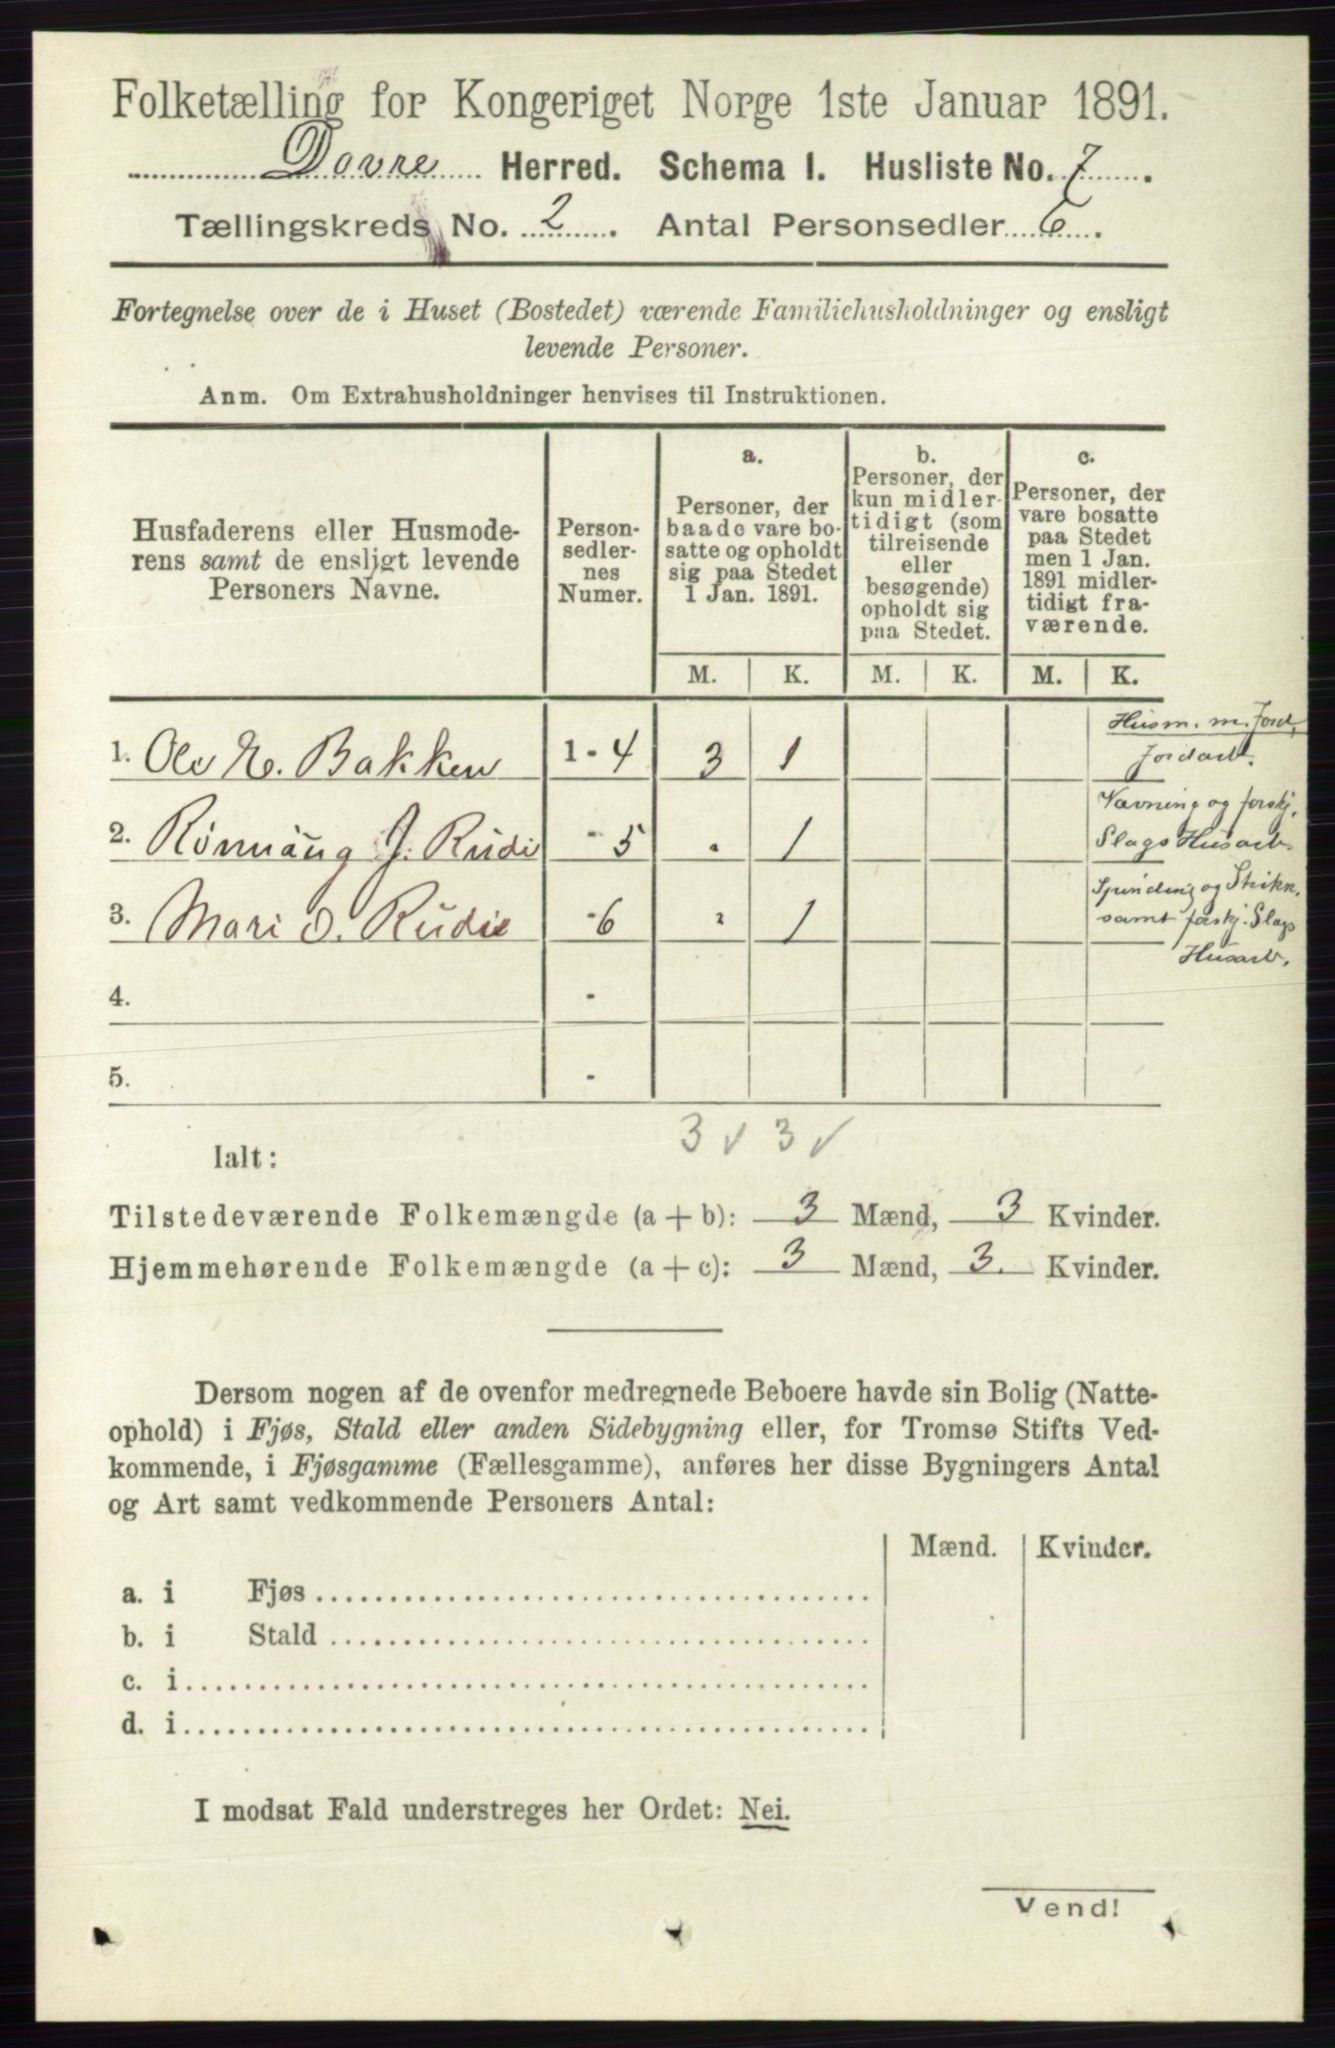 Folketælling for Kongeriget Norge 1ste Januar 1891.
Dovre Herred. Schema I. Husliste No. 7.
Tællingskreds No. 2. Antal Personsedler 6.
Fortegnelse over de i Huset (Bostedet) værende Familiehusholdninger og ensligt
levende Personer.
Anm. Om Extrahusholdninger henvises til Instruktionen.
Husfaderens eller Husmode-
rens samt de ensligt levende
Personers Navne.
Person-
sedler-
nes
Numer.
a.
Personer, der
baade vare bo-
satte og opholdt
sig paa Stedet
1 Jan. 1891.
b.
Personer, der
kun midler-
tidigt (som
tilreisende
eller
besøgende)
opholdt sig
paa Stedet.
c.
Personer, der
vare bosatte
paa Stedet
men 1 Jan.
1891 midler-
tidigt fra-
værende.
M. K. M. K. M. K.
1. Ole E. Bakken 1 - 4 3 1 Husm. m. Jord,
Jordarb.
2. Rønnaug J. Rudi - 5 " 1 Vævning og forskj.
Slags Husarb.
3. Mari O. Rudie - 6 " 1 Spinding og Strikn.
samt forskj. Slags
Husarb.
4. -
5. -
3 ✓ 3 ✓
Ialt:
Tilstedeværende Folkemængde (a + b): 3 Mænd, 3 Kvinder.
Hjemmehørende Folkemængde (a + c): 3 Mænd, 3. Kvinder.
Dersom nogen af de ovenfor medregnede Beboere havde sin Bolig (Natte-
ophold) i Fjøs, Stald eller anden Sidebygning eller, for Tromsø Stifts Ved-
kommende, i Fjøsgamme (Fællesgamme), anføres her disse Bygningers Antal
og Art samt vedkommende Personers Antal:
Mænd. Kvinder.
a. i Fjøs
b. i Stald
c. i
d. i
I modsat Fald understreges her Ordet: Nei.
Vend!